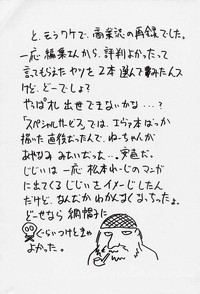 と、ゆうワケで、商業誌の再録でした。
一応 編集さんから、評判よかったって
言てもらえた ヤツを 2本 選んで みたんス
けど、どーでしょ?
やっぱオレ 出世できないかな…?
「スペシャル  どろ」では、エヴァ本ばっか
描った直後だったんで、ねーちゃんが
あやなみ みたいだっち…。安直だ。
じじいは 一応 松本れーじのマンガ
に出てくる じじいを イメージしたん
だけど、なんだか わかんなくなっちった。
どーせなら 網帽子に
ぐらいつけときゃ
よかった。